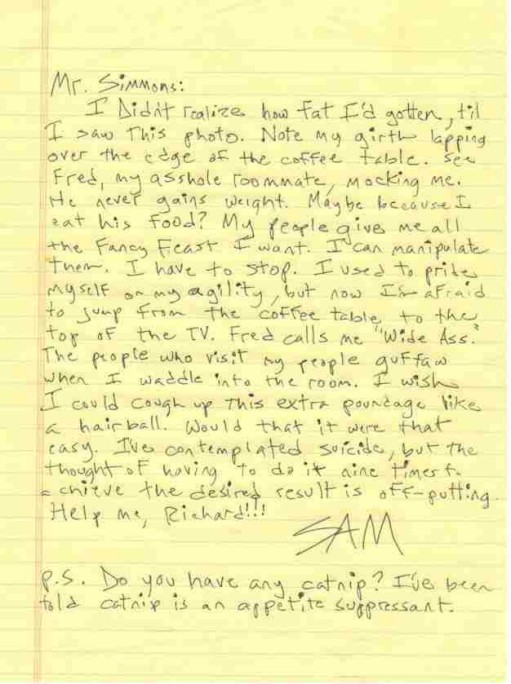 Mr. Simmons:
I Didn't realize how fat I'd gotten, til
I saw this photo. Note my girth lapping
over the edge of the coffee table. See
Fred, my asshole roommate, mocking me.
He never gains weight. Maybe because I
eat his food? My people give me all
the Fancy Feast I want. I can manipulate
them. I have to stop. I used to pride
myself on my agility, but now I'm afraid
to jump from the coffee table to the
top of the TV. Fred calls me "Wide Ass."
The people who visit my people guffaw
when I waddle into the room. I wish
I could cough up this extra poundage like
a hairball. Would that it were that
easy. I've contemplated suicide, but the
thought of having to do it nine times to
achieve the desired result is off-putting.
Help me, Richard!!!
SAM
P.S. Do you have any catnip? I've been
told catnip is an appetite suppressant.